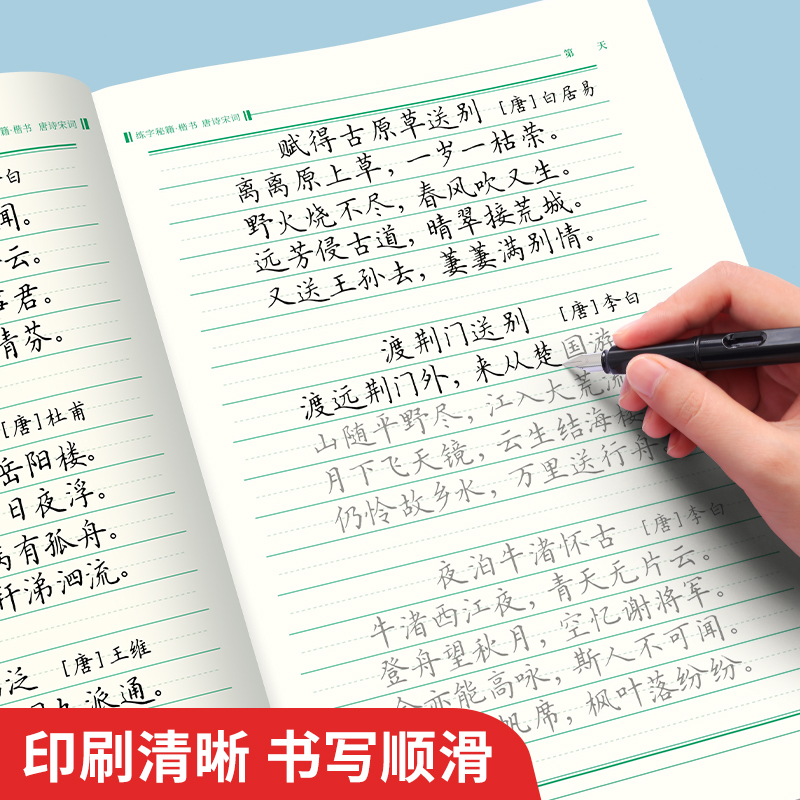 籍·楷书 唐诗宋词
白
闻。
云。
君。
青芬。
[唐]杜甫
岳阳楼。
日夜浮。
有孤舟。
轩涕泗流。
泛 [唐]王维
派通。
第 天
练字秘籍·楷书 唐诗宋词
赋得古原草送别 [唐]白居易
离离原上草，一岁一枯荣。
野火烧不尽，春风吹又生。
远芳侵古道，晴翠接荒城。
又送王孙去，萋萋满别情。
渡荆门送别 [唐]李白
渡远荆门外，来从楚国游
山随平野尽，江入大荒流
月下飞天镜，云生结海楼
仍怜故乡水，万里送行舟
夜泊牛渚怀古 [唐]李白
牛渚西江夜，青天无片云。
登舟望秋月，空忆谢将军。
余亦能高咏，斯人不可闻。
帆席，枫叶落纷纷。
印刷清晰 书写顺滑